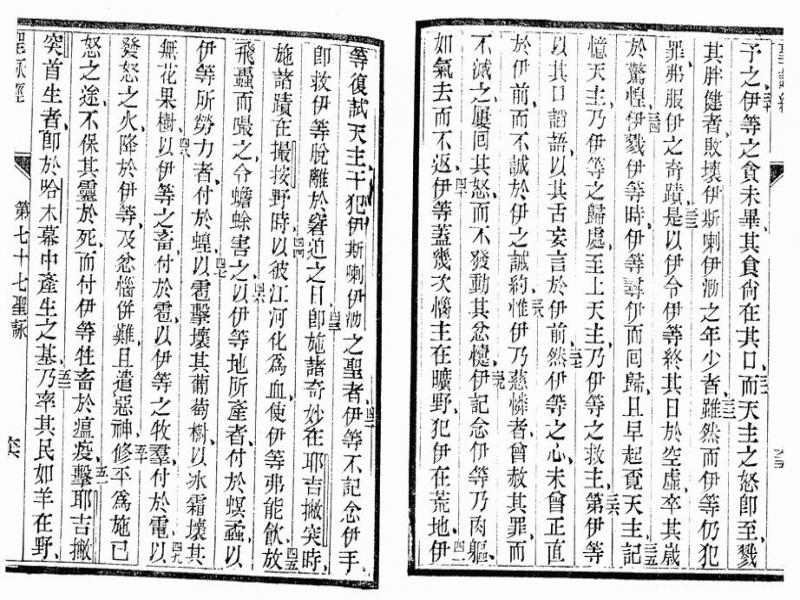 予之三十伊等之食未畢其食尚在其口三一而天主之怒卽至戮
其胖健者敗壞伊斯喇伊泐之年少者三二雖然而伊等仍犯
罪弗服伊之奇蹟三三是以伊令伊等終其日於空虛卒其歲
於驚惶三四伊戮伊等時伊等尋伊而回歸且早起覔天主三五記
憶天主乃伊等之歸處至上天主乃伊等之救主三六第伊等
以其口謟語以其舌妄言於伊前三七然伊等之心未曾正直
於伊前而不誠於伊之誡約三八惟伊乃慈憐者曾赦其罪而
不滅之屢囘其怒而不發動其忿懥三九伊記念伊等乃肉軀
如氣去而不返四十伊等蓋幾次惱主在曠野犯伊在荒地四一伊
等復試天主干犯伊斯喇伊泐之聖者四二伊等不記念伊手
卽救伊等脫離於窘迫之日四三卽施諸奇妙在耶吉撇突時
施諸蹟在撮按野時四四以彼江河化爲血使伊等弗能飮四五放
飛蟲而嘬之令蟾蜍害之四六以伊等地所產者付於螟蟊以
伊等所勞力者付於蝗四七以雹擊壞其葡萄樹以冰霜壞其
無花果樹四八以伊等之畜付於雹以伊等之牧羣付於電四九以
發怒之火降於伊等及忿惱併難且遣惡神五十修平爲施已
怒之途不保其靈於死而付伊等牲畜於瘟疫五一擊耶吉撇
突首生者卽於哈木幕中產生之基五二乃率其民如羊在野
聖詠經
第七十七聖詠